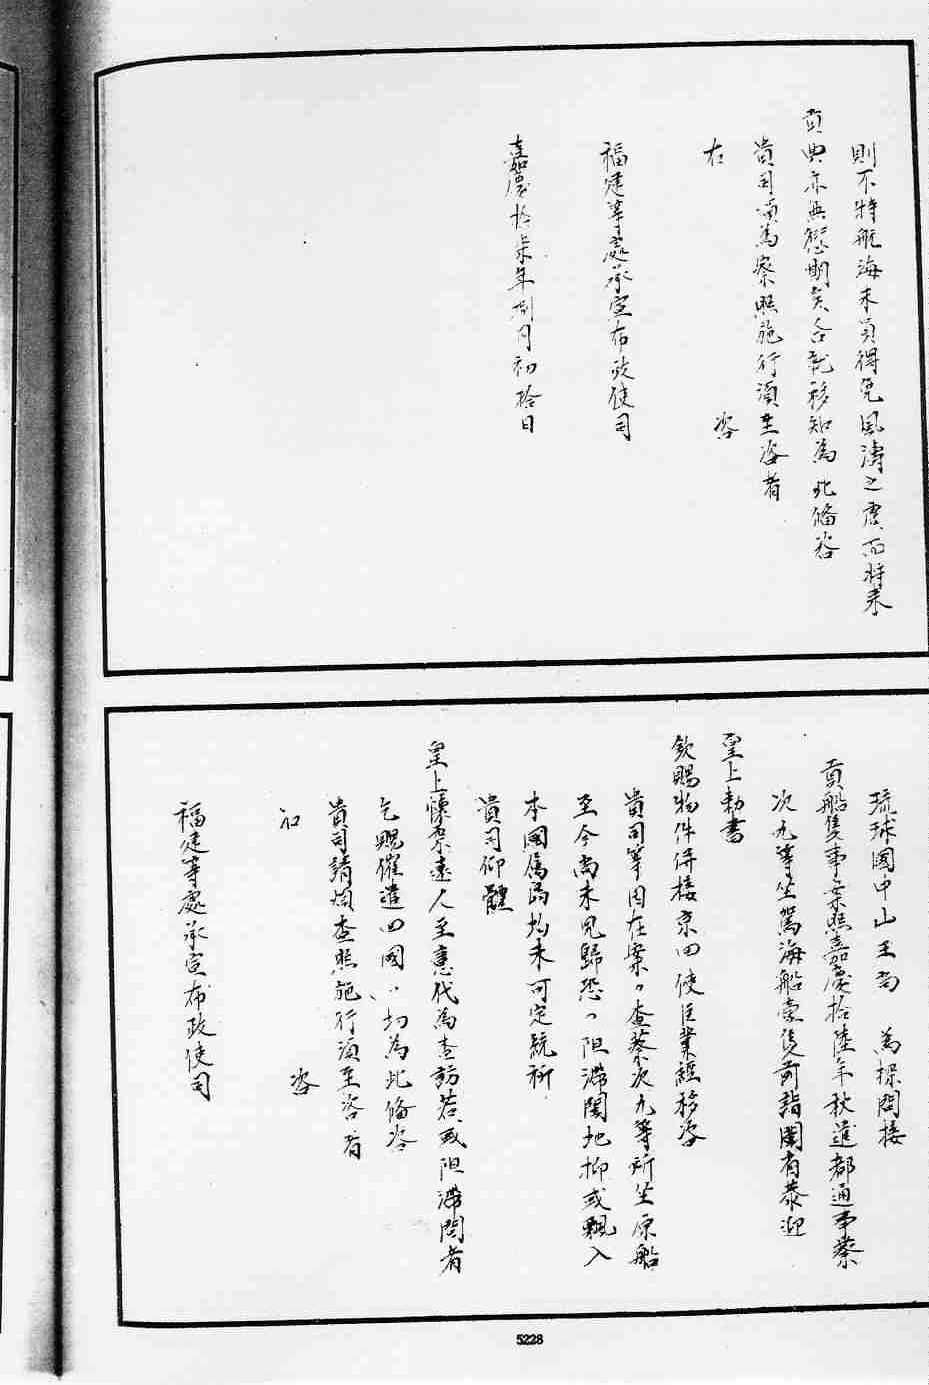 則不特航海末員得免風濤之虞而將来
貢典亦無愆期矣合就移知為此俻咨
貴司須為察照施行須至咨者
右 咨
福建等處承宣布政使司
嘉慶拾柒年捌月初拾日
琉球國中山王尚 為探問接
貢船隻事案照嘉慶拾陸年秋遣都通事蔡
次九等坐駕海船壹隻前詣閩省恭迎
皇上勅書
欽賜物件併接京回使臣業經移咨
貴司等因在案査蔡次九等所坐原船
至今尚未見歸恐阻滯閩地抑或飄入
本國属島均未可定統祈
貴司仰體
皇上懷柔遠人至意代為查訪若或阻滯閩省
乞賜催遣回國切為此俻咨
貴司請煩查照施行須至咨者
右 咨
福建等處承宣布政使司
5228